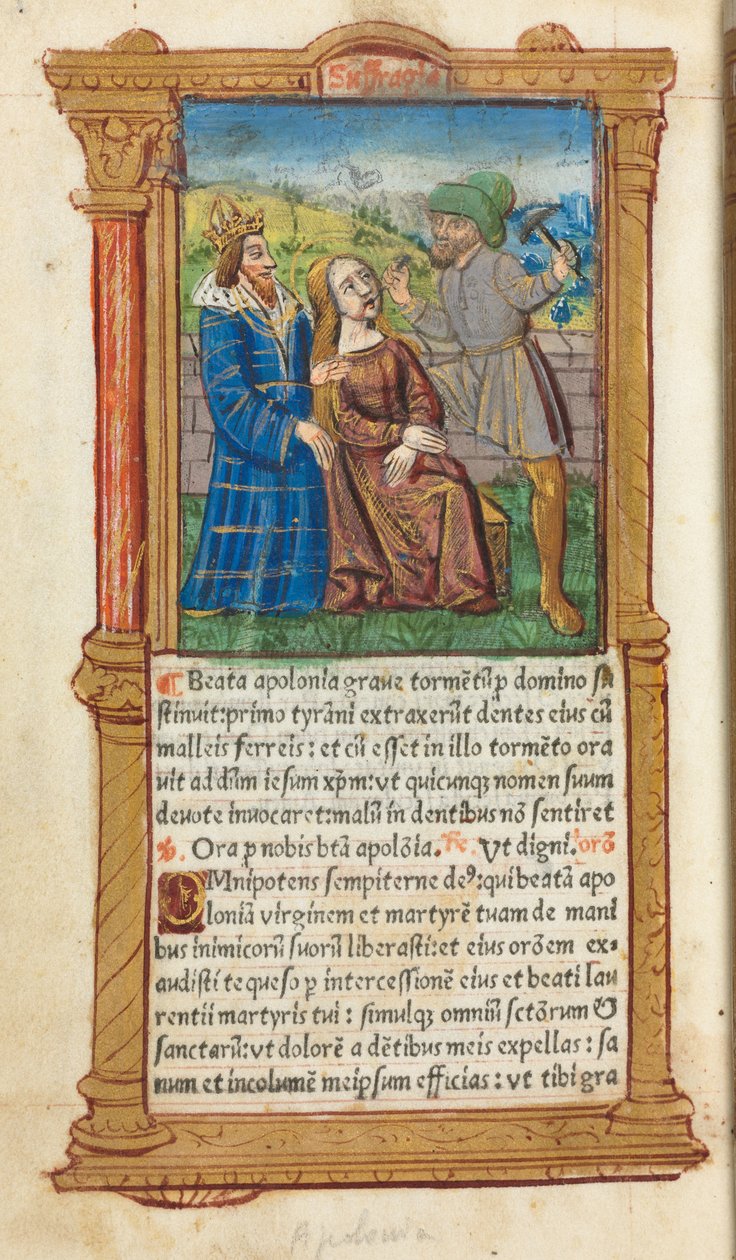 Suffragia
¶ Beata apolonia graue tormẽtũ ꝑ domino su
stinuit: primo tyrãni extraxerũt dentes eius cũ
malleis ferreis: et cũ esset in illo tormẽto ora
uit ad dñm iesum xp̃m: vt quicunqꝫ nomen suum
deuote inuocaret: malũ in dentibus nõ sentiret
℣. Ora ꝓ nobis btã apolõia. ℟. Vt digni. orõ
OMnipotens sempiterne deꝰ: qui beatã apo
loniã virginem et martyrẽ tuam de mani
bus inimicorũ suorũ liberasti: et eius orõem ex⸗
audisti te queso ꝑ intercessionẽ eius et beati lau
rentii martyris tui: simulqꝫ omniũ sctõrum &
sanctarũ: vt dolorẽ a dẽtibus meis expellas: sa
num et incolumẽ meipsum efficias: vt tibi gra
Apolonia